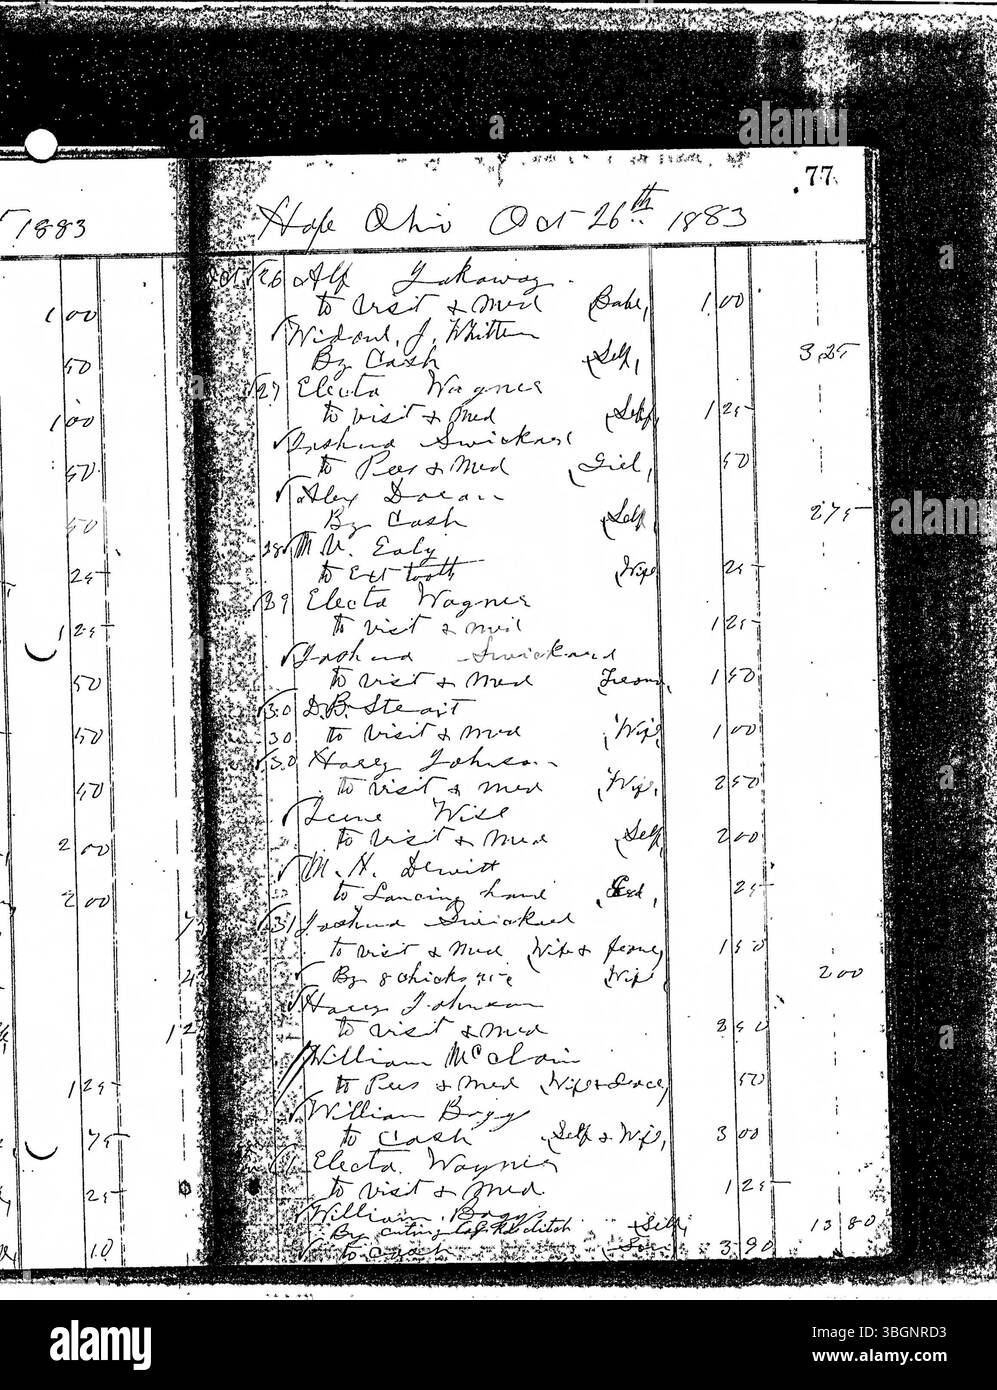 77
1883
Hope Ohio Oct 26th 1883
Oct 26 Alf
to visit & Med Babe, 1 00
1 00
J. Whitten
By Cash Self, 3 25
50
27 Electa Wagner
to visit & Med Self, 1 25
1 00
Joshua Swickard
to Pres & Med Girl, 50
50
Alex Doran
By Cash Self, 2 75
50
28 M. V. Ealy
to Ext tooth Wife 25
25
29 Electa Wagner
to visit & Med 1 25
1 25
Joshua Swickard
to visit & Med 1 50
50
30 D.B. Stewart
30 to visit & Med Wife, 1 00
50
30 Harry Johnson
to visit & Med Wife, 2 50
50
Wise
to visit & Med Self, 2 00
2 00
M. H. Dewitt
to Lancing hand 25
2 00
31 Joshua Swickard
to visit & Med Wife & 1 50
By 8 chicks Wife 2 00
Harry Johnson
to visit & Med 2 50
12
William McClain
to Pres & Med Wife & 50
1 25
William Boggs
to Cash Self & Wife, 3 00
75
1 Electa Wagner
to visit & Med 1 25
25
William Boggs
By ditch Self, 13 80
to Cash 3 90
10
alamy
Image ID: 3BGNRD3
www.alamy.com